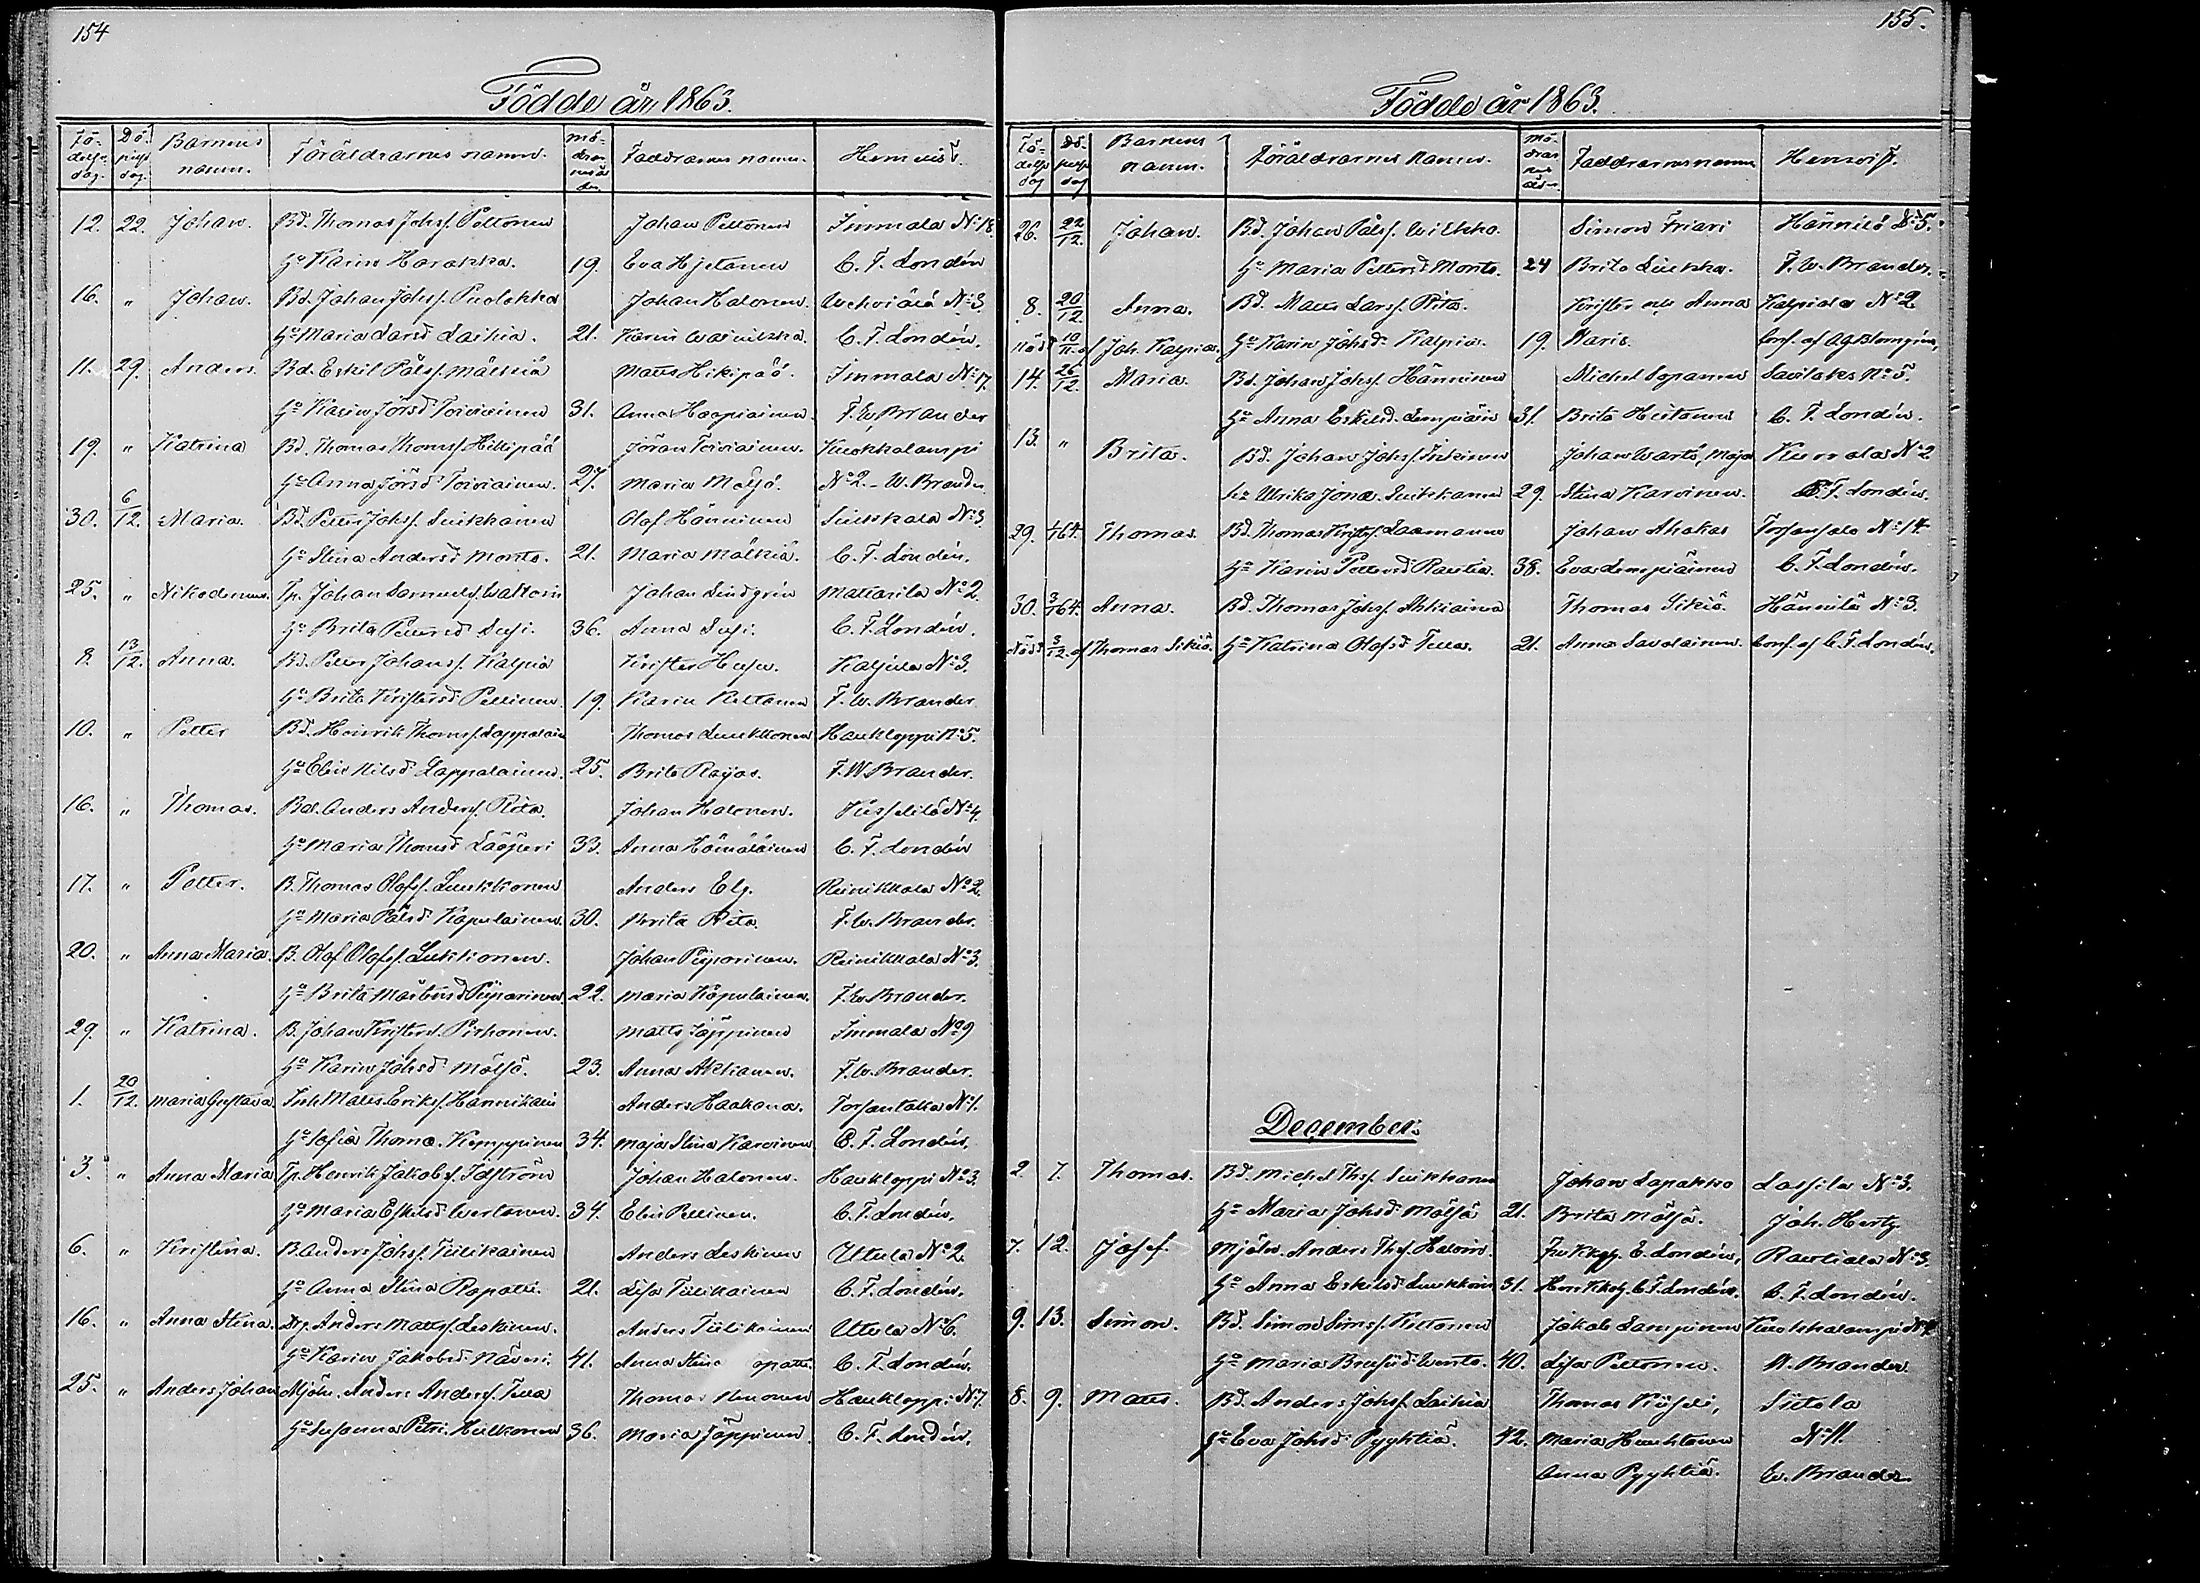 154
Födde år 1863.
Fö-delse dag. Döpelse dag. Barnens namn. Föräldrarnes namn. mödrarnes ålder Faddrarnes namn. Hemvist.
12. 22. Johan. Bd. Thomas Johsf. Peltonen Johan Peltonen Immala No 18.
Ho Karin Harakka. 19. Eva Hjetanen C. F. Londén
16. " Johan. Bd. Johan Johsf. Puolakka Johan Halonen. No 3
Ho Maria Larsd Laihia. 21. Karin C. F. Londén.
11. 29. Anders. Bd. Eskil Pålsf. Mälkiä Matts Hikipää. Immala No 17.
Ho Karin Jörsd Toiviainen 31. Anna Haapiainen. F. W. Brander
19. " Katrina Bd. Thomas Thomsf. Hikipää Jöran Toiviainen. Kuokkalampi
Ho Anna Jörsd Toiviainen. 27. Maria Mälsä. No 2. - W. Brander
30. 6/12. Maria. Bd. Petter Johsf. Suikkanen Olof Hänninen Suikkala No 3.
Ho Stina Andersd Monto. 21. Maria Mälkiä. C. F. Londén.
25. " Nikodemus. Tp. Johan Samuelsf. Johan Lindgrén Mattarila No 2.
Ho Brita Pettersd Susi. 36. Anna Susi. C. F. Londén.
8. 13/12. Anna. Bd. Petter Johansf. Kalpia Krister Kalpiala No 3.
Ho Brita Kristersd Pellinen. 19. Karin Keltanen F. W. Brander
10. " Petter Bd. Henrik Thomsf. Lappalain Thomas Luukkonen Haukloppi No 5.
Ho Elin Nilsd Lappalainen. 25. Brita Rajas. F. W. Brander.
16. " Thomas. Bd. Anders Andersf. Rita. Johan Halonen. No 4.
Ho Maria Thomsd Lääperi 33. Anna Hämäläinen C. F. Londén
17. " Petter. B. Thomas Olofsf. Luukkonen Anders Elg. Reinikkala No 2.
Ho Maria Pålsd Kapulainen. 30. Brita Rita F. W. Brander.
20. " Anna Maria. B. Olof Olofsf. Lukkonen. Johan Piiparinen. Reinikkala No 3.
Ho Brita Mårtensd Piiparinen. 22. Maria Kapulainen. F. W. Brander.
29. " Katrina. B. Johan Kristersf. Pirhonen. Matts Jäppinen Immala No 9
Ho Karin Johsd Mälsä. 23. Anna Ahtianen. F. W. Brander.
1. 20/12. Maria Gustava. Inh Matts Eriksf. Hannikain Anders Haakana. Torsantaka No 1.
Ho Sofia Thomæ. Kemppinen 34. Maja Stina Karvinen C. F. Londén.
3. " Anna Maria Tp. Henrik Jakobsf. Idström Johan Halonen. Haukloppi No 3.
Ho Maria Eskilsd Wertanen. 34. Elin Pellinen. C. F. Londén.
6. " Kristina. B. Anders Johsf. Tiilikainen Anders Leskinen Uttula No 2.
Ho Anna Stina Rapatti. 21. Lisa Tiilikainen C. F. Londén.
16. " Anna Stina. Drg. Anders Mattsf. Leskinen. Anders Tiilikainen Uttula No 6.
Ho Karin Jakobsd Näveri. 41. Anna Stina apatti. C. F. Londén.
25. " Anders Johan Mjöln. Anders Andersf. Tella Thomas Haukloppi No 7.
Ho Susanna Petri. Hulkonen 36. Maria Jäppinen. C. F. Londén.
155.
Födde år 1863.
Fö-delse dag Döpelse dag Barnens namn. Föräldrarnes namn. Mödrarnes ålder. Faddrarnes namn Hemvist.
26. 22/12. Johan. Bd. Johan Pålsf. Wilkko. Simon Friari Hännilä No 5.
Ho Maria Pettersd Monto. 24 Brita Liukka. F. W. Brander.
8. 20/12. Anna. Bd. Matts Larsf. Rita. Krister och Anna Kalpiala No 2
Nödd 10/11. af Joh. Kalpia. Ho Karin Johsd Kalpia. 19. Haris. Conf. af A G Blomgren.
14. 26/12. Maria. Bd. Johan Johsf. Hänninen Michel Sopanen Savilaks No 5.
Ho Anna Eskilsd. Lempiäin 31. Brita Hietanen C. F. Londén.
13. " Brita. Bd. Johan Johsf. Inkinen Johan Wartå, Maja Kurrala No 2
Ho Ulrika Jonæ. Suikkanen 29. Stina Karvinen. C. F. Londén.
29. 1/1 64. Thomas. Bd. Thomas Kristsf. Laamanen Johan Ahokas Torsansalo No 14
Ho Karin Pettersd Rautia. 38. Eva Lempiäinen C. F. Londén.
30. 3/1 64. Anna. Bd. Thomas Johsf. Ahkiainen Thomas Sikiö. Hännilä No 3.
Nödd 3/12. af Thomas Sikiö. Ho Katrina Olofsd Tella. 21. Anna Savolainen. Conf. af C. F. Londén.
December.
2. 7. Thomas. Bd. Michel Thsf. Suikkanen Johan Lapakko Lassila No 3.
Ho Maria Johsd Mälsä 21. Brita Mälsä. Joh. Hertz.
7. 12. Josef. Mjöln. Anders Thsf. Halonen. Fru Kkhg. E. Londén, Rautiala No 3.
Ho Anna Eskilsd Luukkonen 31. Herr Kkhg. C. F. Londén. C. F. Londén.
9. 13. Simon. Bd. Simon Simsf. Peltonen Jakob Lampinen Kuokkalampi No
Ho Maria Wento. 40. Lisa Peltonen. W. Brander.
8. 9. Matts. Bd. Anders Johsf. Laihia Thomas Siitola
Ho Eva Johsd Pyyhtiä. 42. Maria Huuhtanen No 11.
Anna Pyyhtiä. W. Brander.